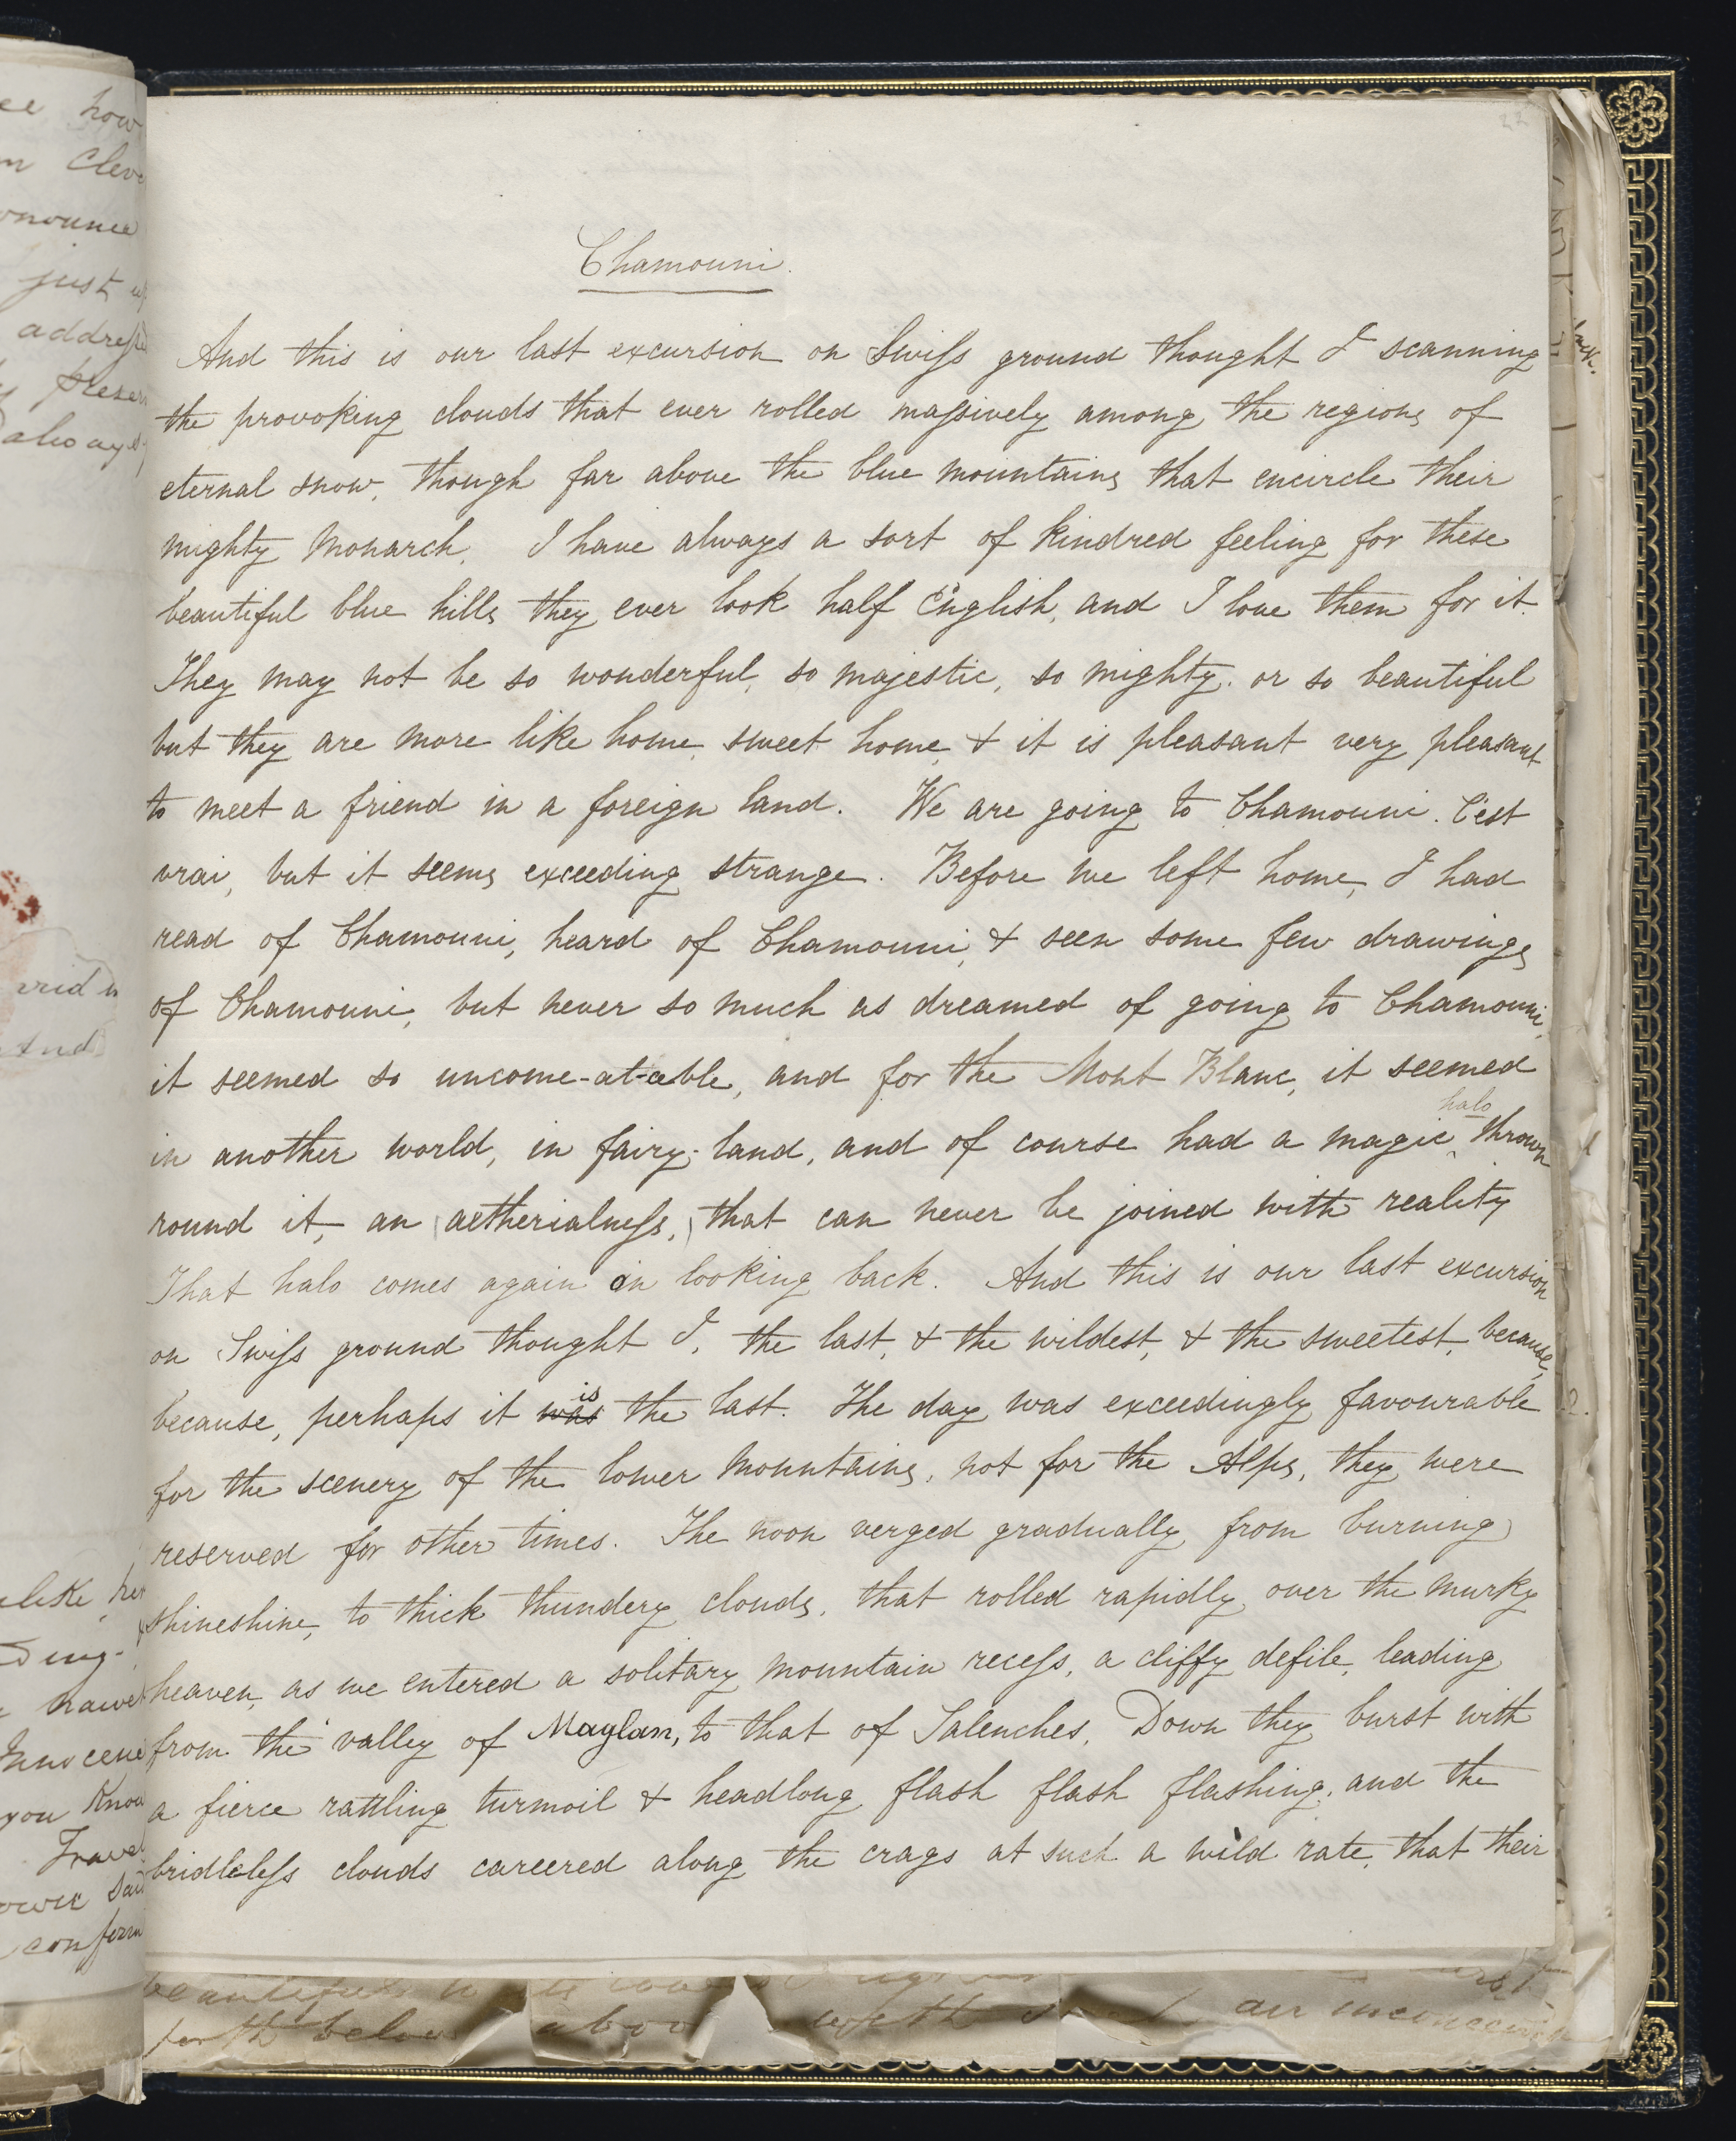 22
Chamouni.
And this is our last excursion on Swiss ground thought I scanning
the provoking clouds that ever rolled massively among the regions of
eternal snow, though far above the blue mountains that encircle their
mighty Monarch. I have always a sort of kindred feeling for these
beautiful blue hills they ever look half English, and I love them for it.
They may not be so wonderful, so majestic, so mighty, or so beautiful
but they are more like home, sweet home, & it is pleasant very pleasant
to meet a friend in a foreign land. We are going to Chamouni. C'est
vrai, but it seems exceeding strange. Before we left home, I had
read of Chamouni, heard of Chamouni, & seen some few drawings
of Chamouni, but never so much as dreamed of going to Chamouni,
it seemed so uncome-at-able, and for the Mont Blanc, it seemed
halo
in another world, in fairy-land, and of course had a magic ‸ thrown
round it, an aetherialness, that can never be joined with reality
That halo comes again in looking back. And this is our last excursion
on Swiss ground thought I, the last, & the wildest, & the sweetest, because,
is
because, perhaps it was the last. The day was exceedingly favourable
for the scenery of the lower mountains, not for the Alps, they were
reserved for other times. The noon verged gradually from burning
shineshine, to thick thundery clouds, that rolled rapidly over the murky
heaven, as we entered a solitary mountain recess, a cliffy defile, leading
from the valley of Maglan, to that of Salenches. Down they burst with
a fierce rattling turmoil & headlong flash flash flashing, and the
bridleless clouds careered along the crags at such a wild rate, that their
how
just
know
beautiful
below above with